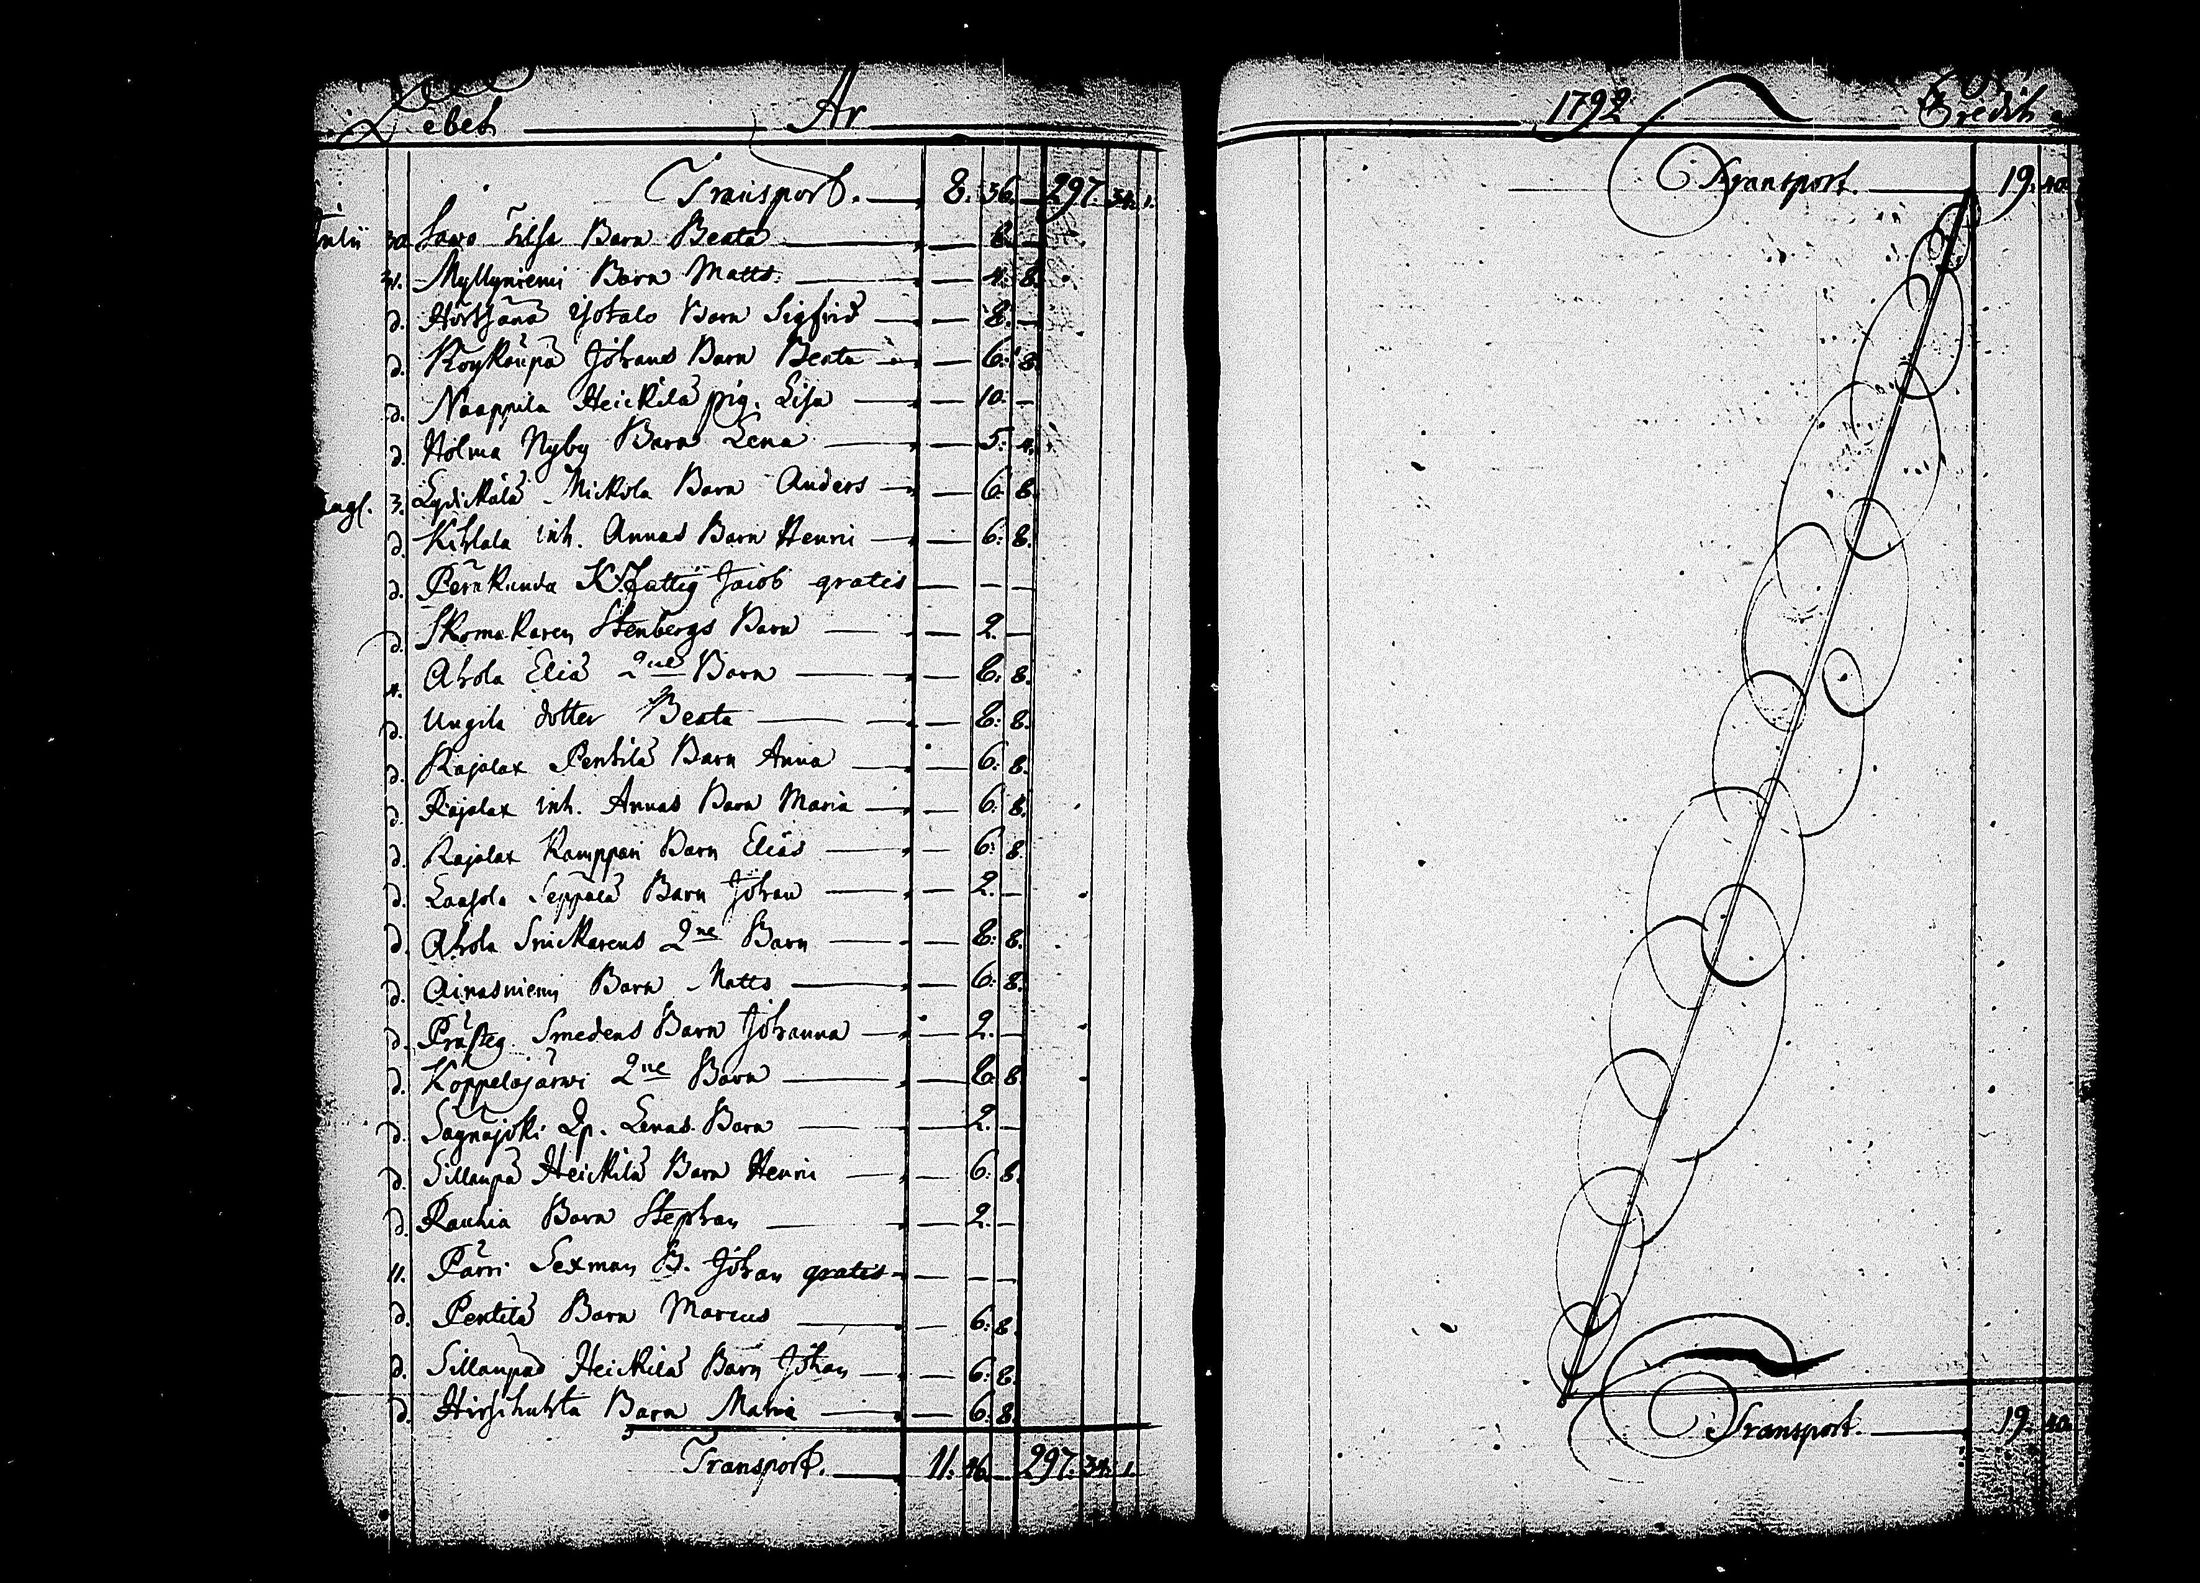 Debet År
Transport. 8. 36. 297. 34. 1.
Julii 30 Sawo Barn Beata 8.
31. Myllyniemi Barn Matts. 4. 8.
d. Isotalo Barn Sigfrid 8.
d. Köykänpä Johans Barn Beata 6. 8.
d. Naappila Heickilä pig. Lisa 10.
d. Holma Nyby Barn Lena 5. 4.
Aug. 3. Lydickälä Mickola Barn Anders 6. 8.
d. Kihlala inh. Annas Barn Henric 6. 8.
d. Pernkunda Jacob gratis
d. Skomakaren Stenbergs Barn 2.
4. Ahola Eliä 2ne Barn 8. 8.
d. Ungila dotter Beata 8. 8.
d. Rajalax Pentilä Barn Anna 6. 8.
d. Rajalax inh. Annas Barn Maria 6. 8.
d. Rajalax Kamppari Barn Elias 6. 8.
d. Laajola Seppälä Barn Johan 2.
d. Ahola Snickarens 2ne Barn 8. 8.
d. Ainasniemi Barn Matts 6. 8.
d. Prästeg. Smedens Barn Johanna 2.
d. Koppelojärwi 2ne Barn 8. 8.
d. Qp. Lenas Barn 2.
d. Sillanpä Heickilä Barn Henric 6. 8.
d. Rauhia Barn Stephan 2.
11. Pärri Sexman B. Johan gratis
d. Pentilä Barn Marcus 6. 8.
d. Sillanpää Heickilä Barn Johan 6. 8.
d. Hirsihuhta Barn Maria 6. 8.
Transport. 11. 46. 297. 34. 1.
1792 Credit
Transport. 19. 40.
Transport. 19. 40.